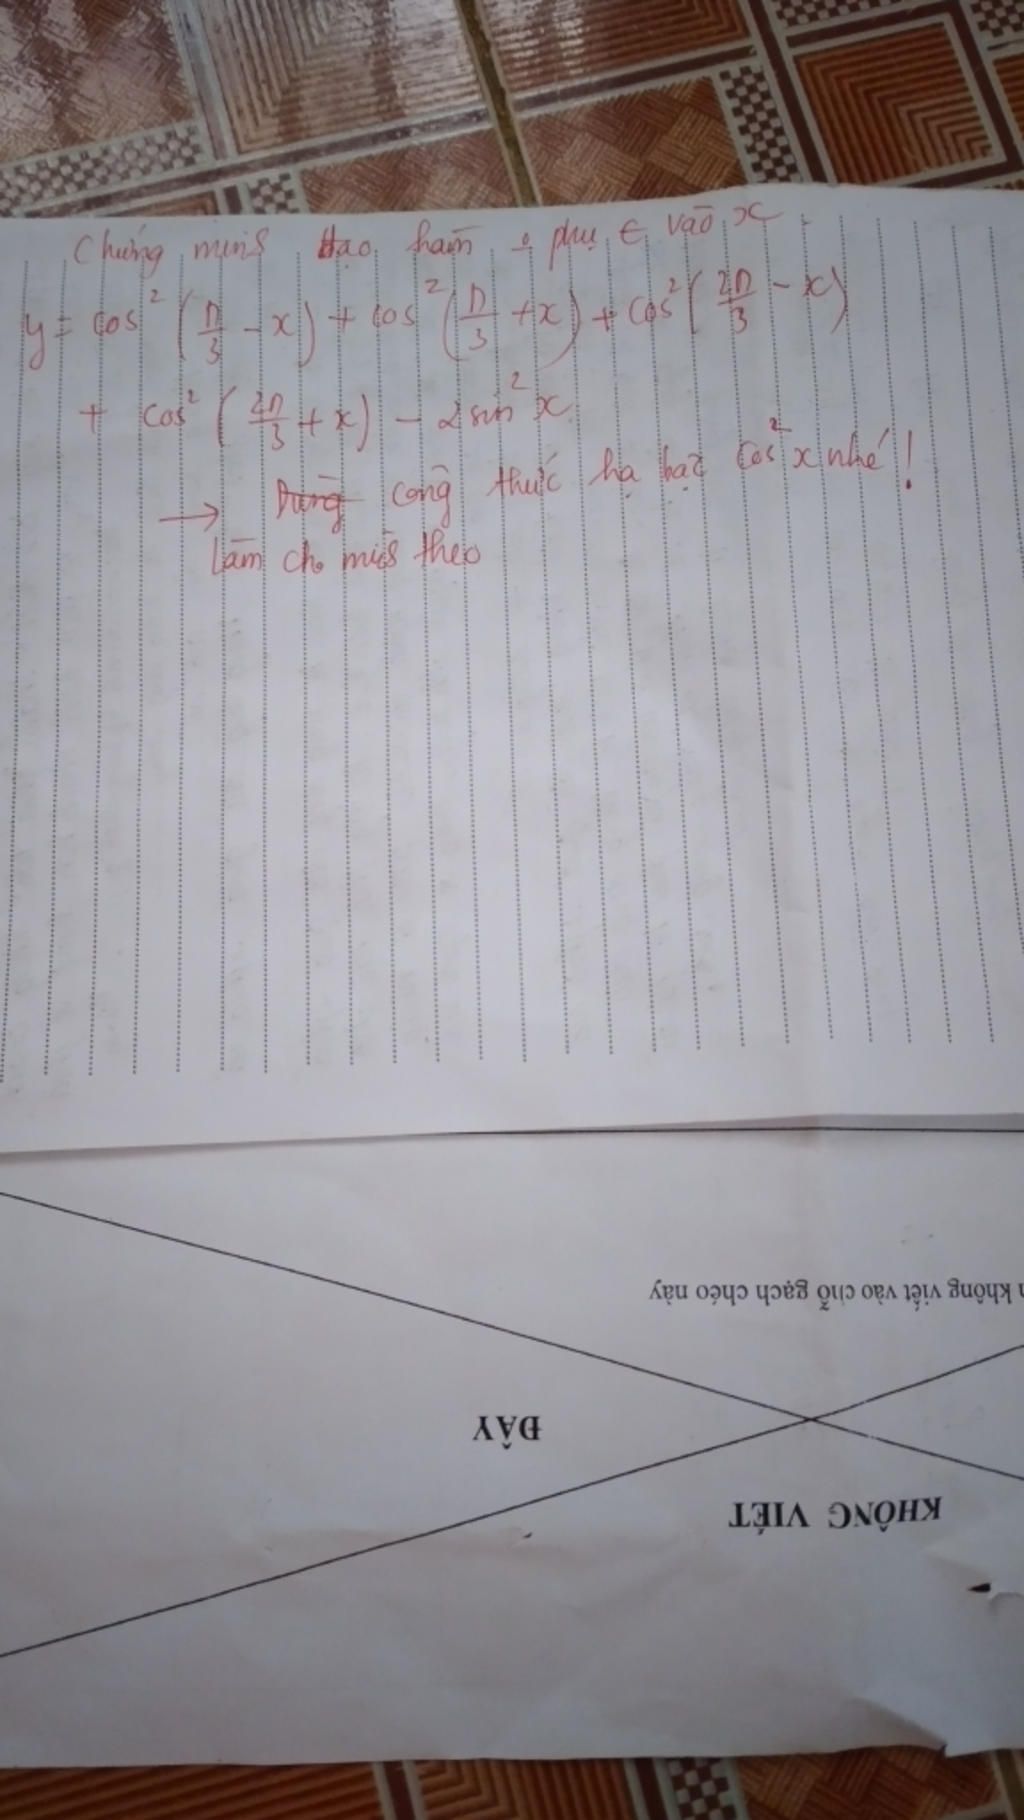 Chứng minh đạo hàm o phụ ∈ vào x
y = cos² (π/3 - x) + cos² (π/3 + x) + cos² (2π/3 - x)
+ cos² (2π/3 + x) - 2sin² x
→ Dùng công thức hạ bậc cos² x nhé!
Làm cho mình theo
không viết vào chỗ gạch chéo này
ĐÂY
KHÔNG VIẾT